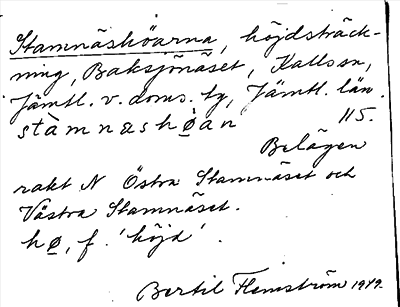 Stamnäshöarna, höjdsträck-
ning, Baksjönäset, Kalls sn,
Jämtl. v. doms. tg, Jämtl. län.
stàmnæshøan 115.
Belägen
rakt N Östra Stamnäset och
Västra Stamnäset.
hø, f. 'höjd'.
Bertil Flemström 1949.